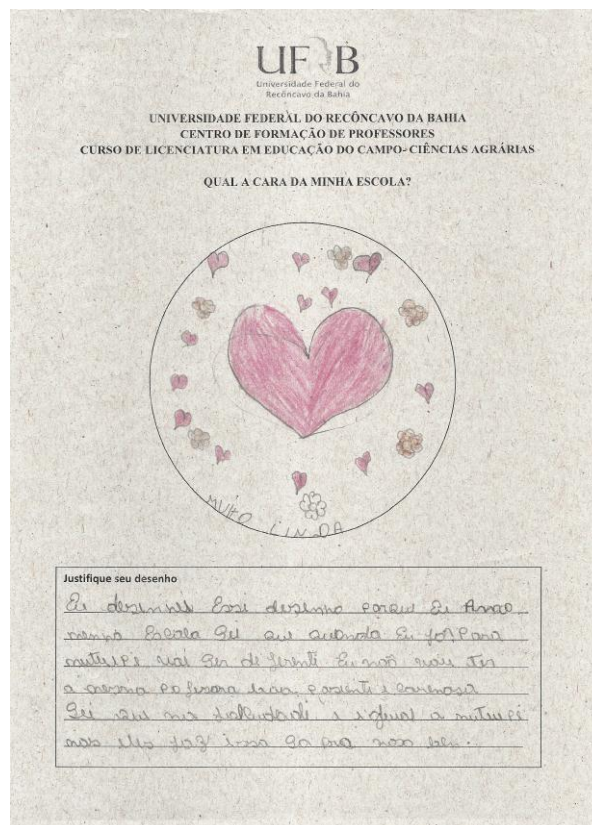 UFRB
Universidade Federal do
Recôncavo da Bahia
UNIVERSIDADE FEDERAL DO RECÔNCAVO DA BAHIA
CENTRO DE FORMAÇÃO DE PROFESSORES
CURSO DE LICENCIATURA EM EDUCAÇÃO DO CAMPO- CIÊNCIAS AGRÁRIAS
QUAL A CARA DA MINHA ESCOLA?
MUITO LINDA
Justifique seu desenho
Eu desenhei Esse desenho porque Eu Amo
minha Escola Sei que quando Eu for Para
mutuipe vai Ser diferente Eu não vou ter
a mesma pofesora paciente e carinhosa
Sei que e igual a mutuipe
mas faz isso So pra noso bem.